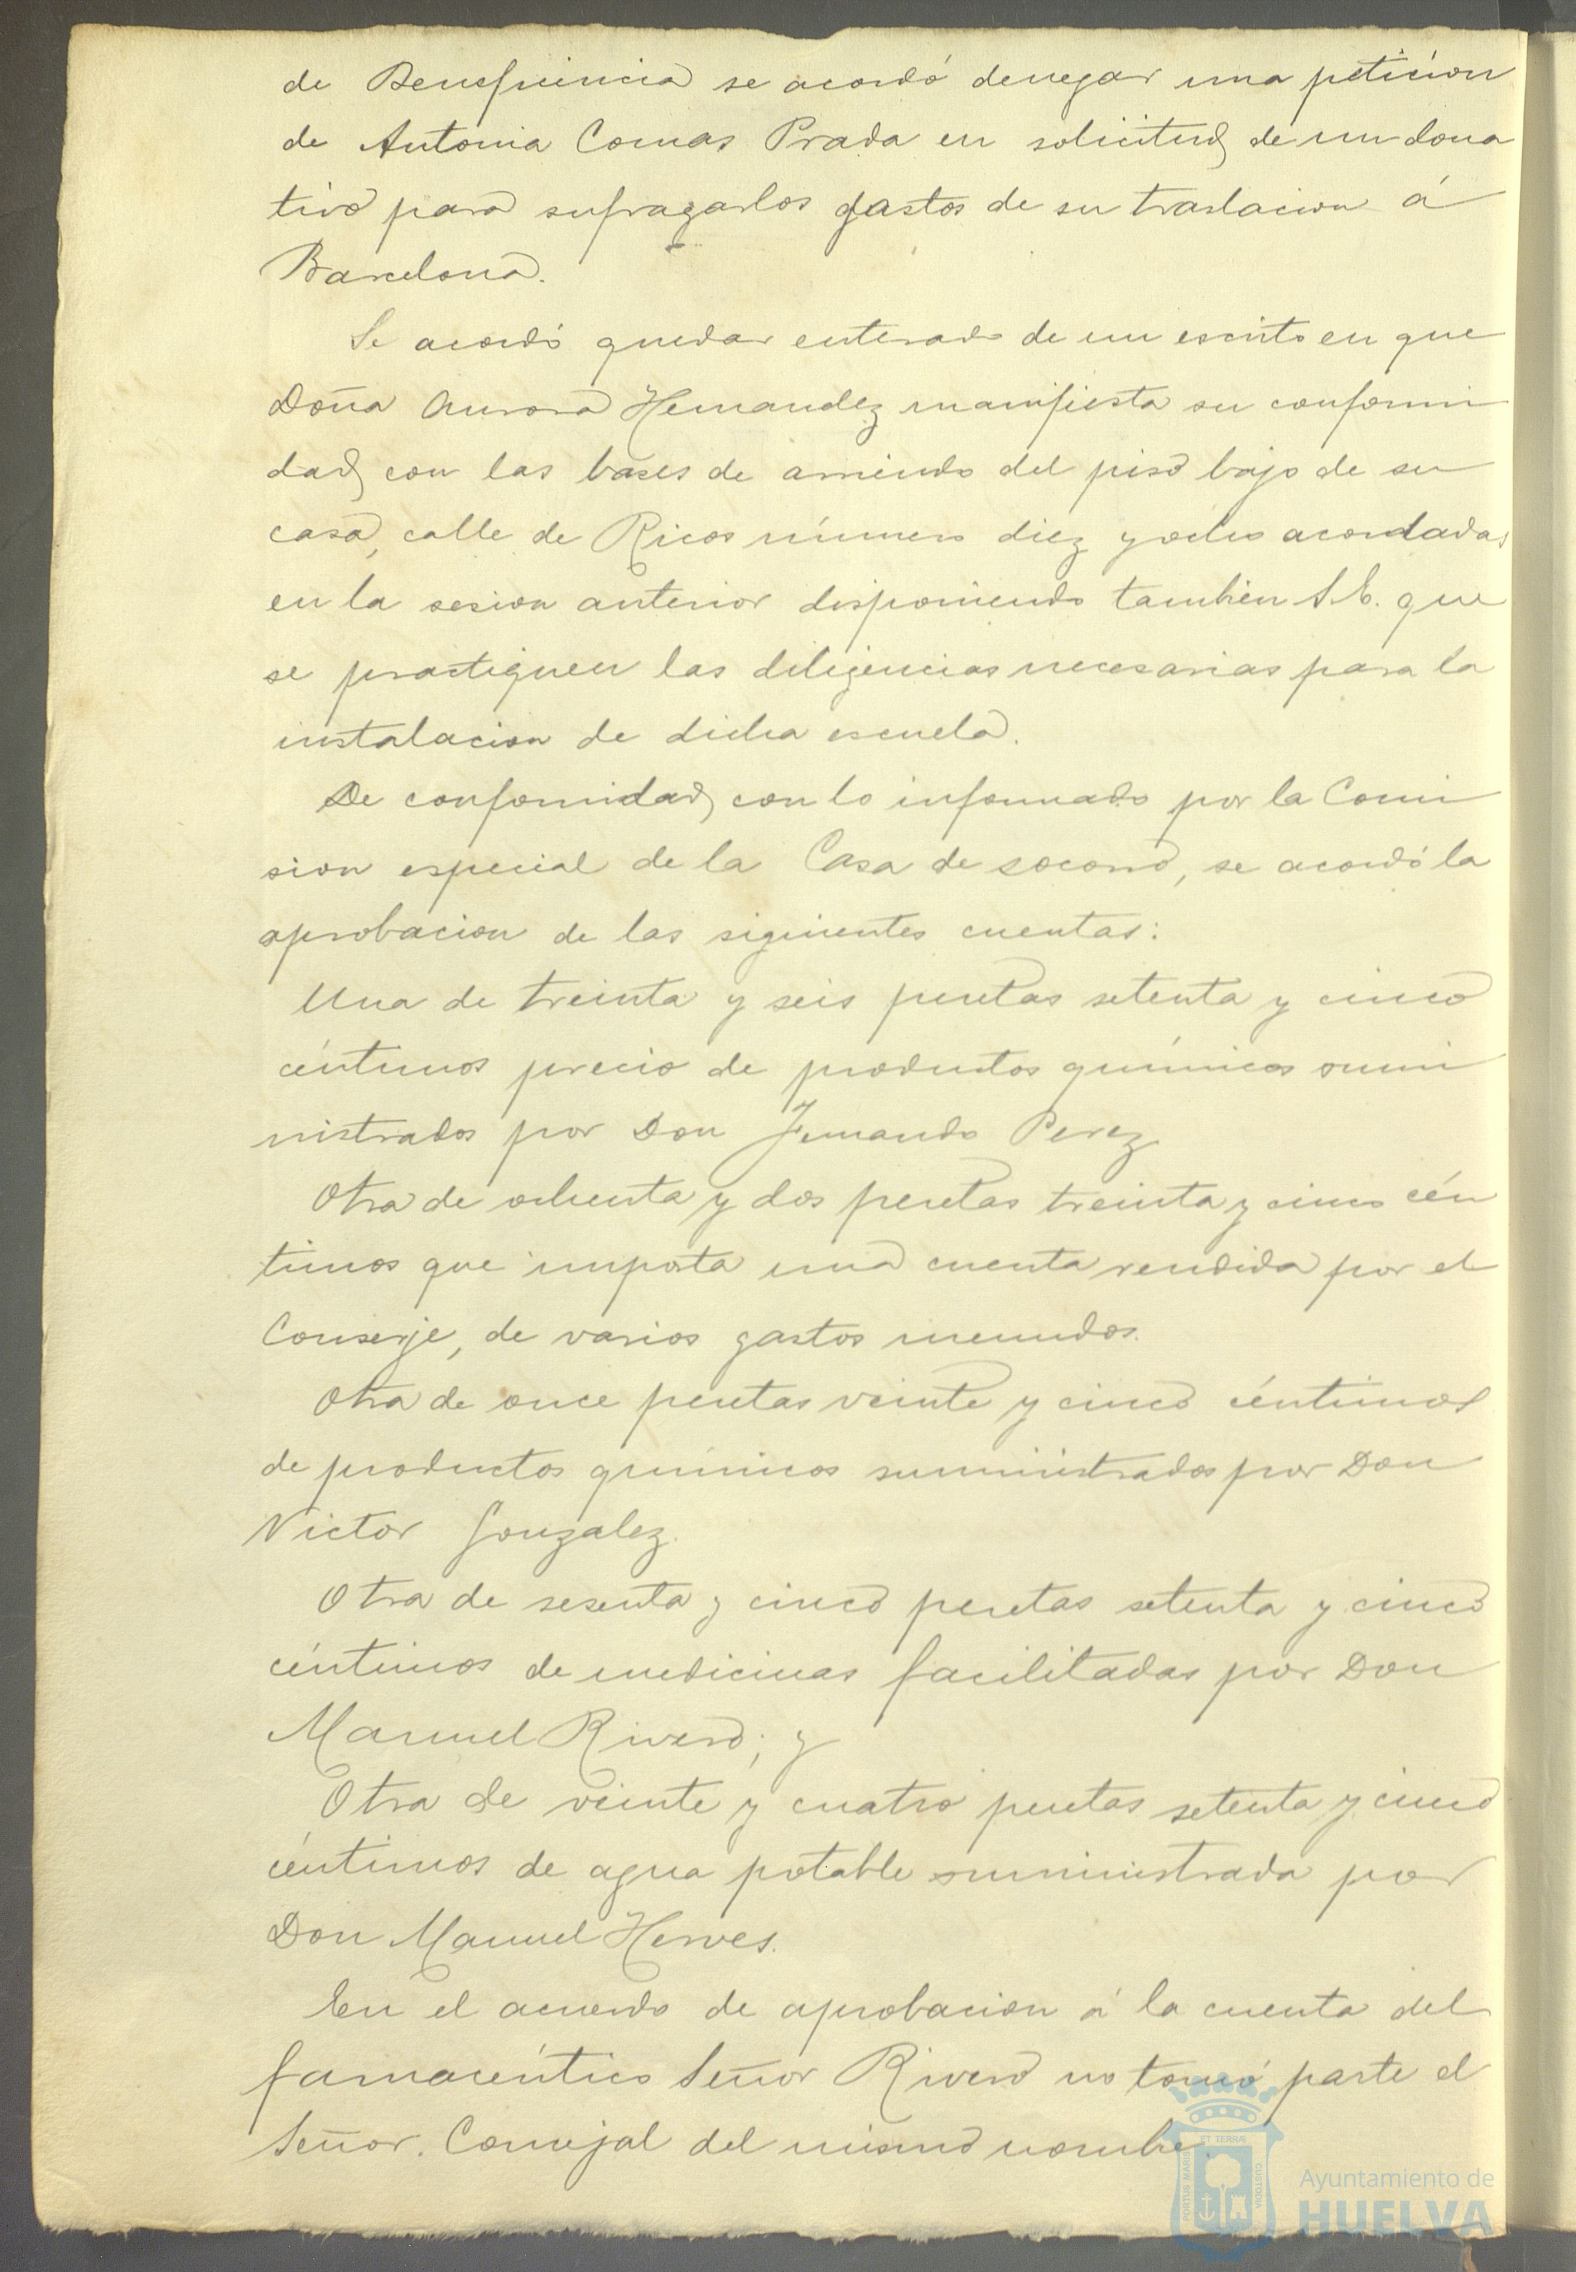 de Beneficencia se acordó denegar una peticion
de Antonia Comas Prada en solicitud de un dona
tivo para sufragar los gastos de su traslacion á
Barcelona.
Se acordó quedar enterado de un escrito en que
Doña Aurora Hernandez manifiesta su conformi
dad con las bases de arriendo del piso bajo de su
casa, calle de Ricos número diez y ocho acordadas
en la sesion anterior disponiendo tambien S.E. que
se practiquen las diligencias necesarias para la
instalacion de dicha escuela.
De conformidad con lo informado por la Comi
sion especial de la Casa de socorro, se acordó la
aprobacion de las siguientes cuentas:
Una de treinta y seis pesetas setenta y cinco
céntimos precio de productos químicos sumi
nistrados por Don Fernando Perez
Otra de ochenta y dos pesetas treinta y cinco cén
timos que importa una cuenta rendida por el
Conserje, de varios gastos menudos.
Otra de once pesetas veinte y cinco céntimos
de productos químicos suministrados por Don
Victor Gonzalez.
Otra de sesenta y cinco pesetas setenta y cinco
céntimos de medicinas facilitadas por Don
Manuel Rivero; y
Otra de veinte y cuatro pesetas setenta y cinco
céntimos de agua potable suministrada por
Don Manuel Herves.
En el acuerdo de aprobacion á la cuenta del
farmacéutico Señor Rivero no tomó parte el
Señor. Concejal del mismo nombre.
PORTUS MARIS ET TERRÆ CUSTODIA
Ayuntamiento de
HUELVA